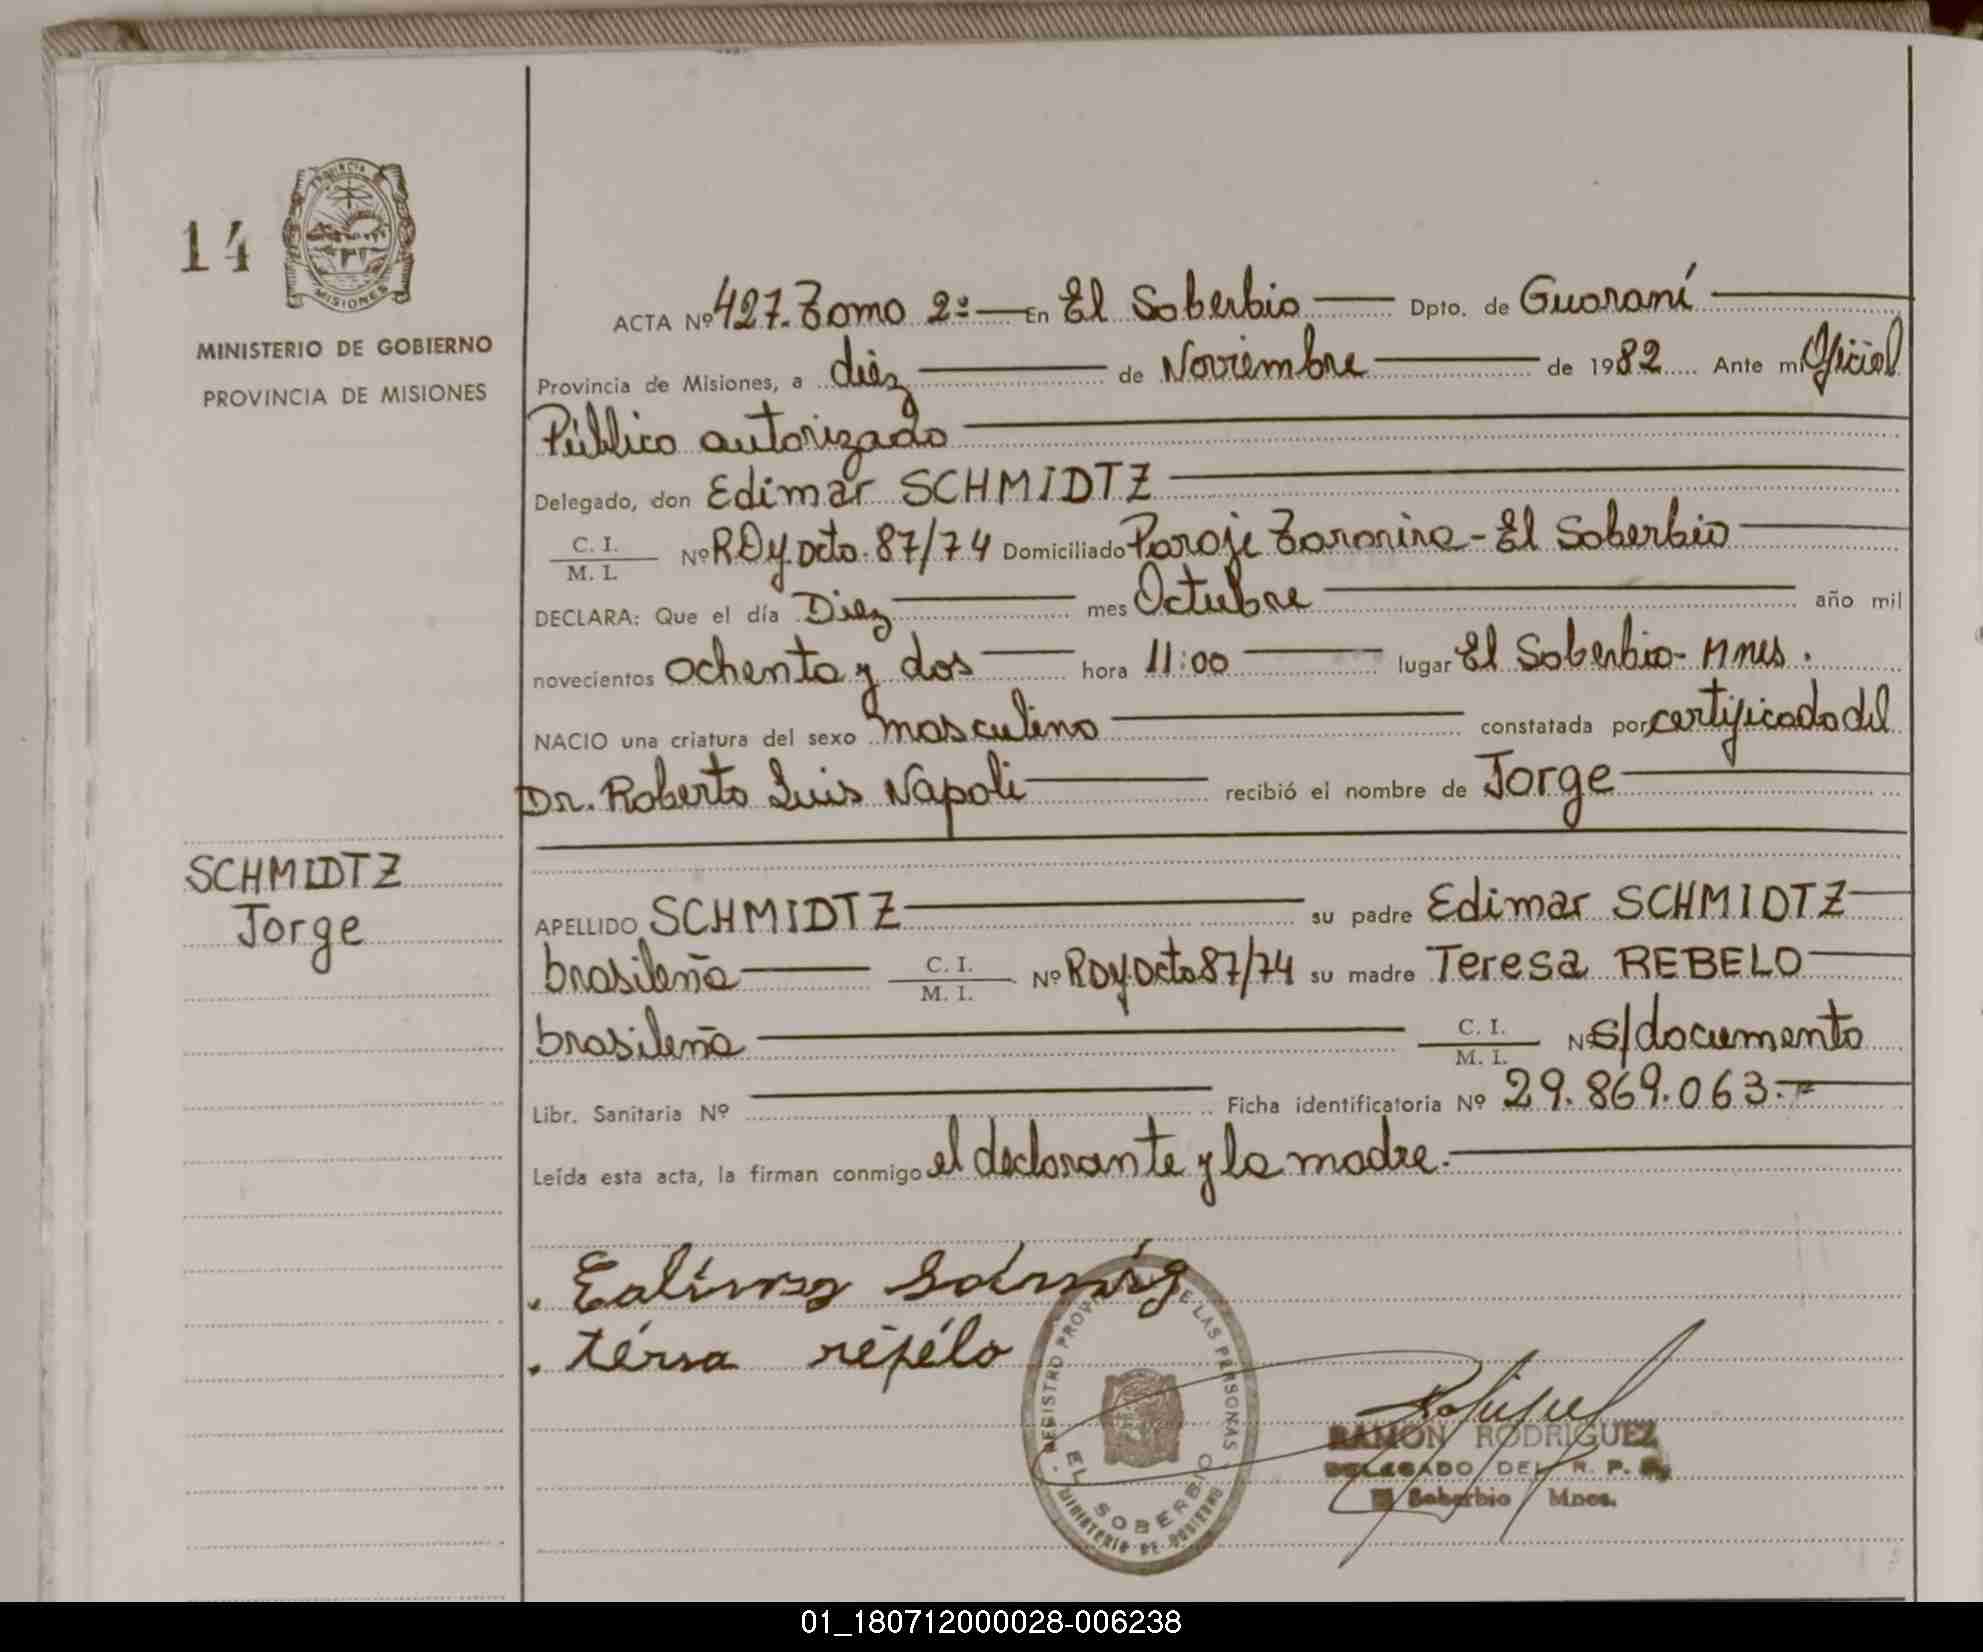 14
PROVINCIA
MISIONES
MINISTERIO DE GOBIERNO
PROVINCIA DE MISIONES
ACTA Nº 427. Tomo 2º En El Soberbio Dpto. de Guaraní
Provincia de Misiones, a diéz de Noviembre de 1982 Ante mi Oficial
Público autorizado
Delegado, don Edimar SCHMIDTZ
C. I.
M. I. Nº RDy. Dcto. 87/74 Domiciliado Paraje Taranina - El Soberbio
DECLARA: Que el día Diez mes Octubre año mil
novecientos ochenta y dos hora 11:00 lugar El Soberbio - Mnes.
NACIO una criatura del sexo masculino constatada por certificado del
Dr. Roberto Luis Napoli recibió el nombre de Jorge
SCHMIDTZ
Jorge
APELLIDO SCHMIDTZ su padre Edimar SCHMIDTZ
brasileña C. I.
M. I. Nº RDy. Dcto 87/74 su madre Teresa REBELO
brasileña C. I.
M. I. Nº S/documento
Libr. Sanitaria Nº Ficha identificatoria Nº 29.869.063.=
Leída esta acta, la firman conmigo el declarante y la madre.
térsa
REGISTRO PROV DE LAS PERSONAS
EL SOBERBIO
MINISTERIO DE GOBIERNO
RAMON RODRIGUEZ
DELEGADO DEL R. P. P.
El Soberbio Mnes.
01_180712000028-006238